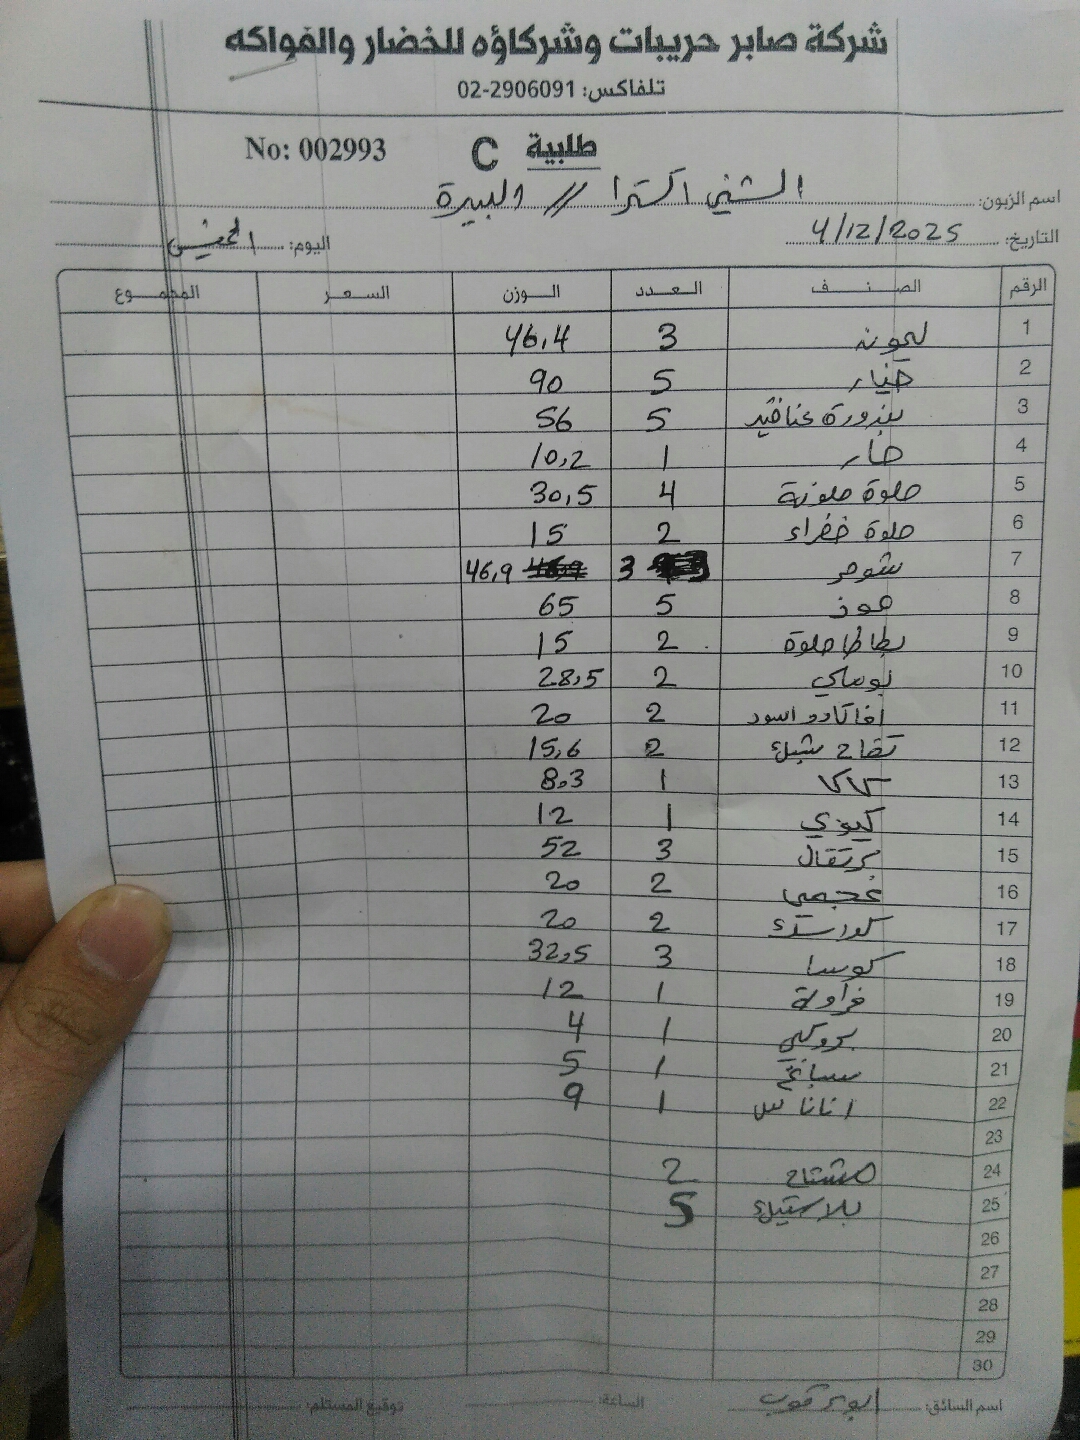 شركة صابر حريبات وشركاؤه للخضار والفواكه
تلفاكس: 02-2906091
No: 002993 C طلبية
اسم الزبون: الشني اكسترا // البيرة
التاريخ: 4/12/2025 اليوم: الخميس
الرقم الصنف العدد الوزن السعر المجموع
1 ليمونه 3 46,4
2 خيار 5 90
3 بندورة عناقيد 5 56
4 حار 1 10,2
5 حلوة ملونة 4 30,5
6 حلوة خضراء 2 15
7 شومر 3 46,9
8 موز 5 65
9 بطاطا حلوة 2 15
10 بوملي 2 28,5
11 افاكادو اسود 2 20
12 تفاح 2 15,6
13 كاكا 1 8,3
14 كيوي 1 12
15 برتقال 3 52
16 عجمي 2 20
17 2 20
18 كوسا 3 32,5
19 فراولة 1 12
20 بروكلي 1 4
21 سبانخ 1 5
22 اناناس 1 9
23
24 مشتاح 2
25 بلاستيك 5
26
27
28
29
30
اسم السائق: الساعة: توقيع المستلم: